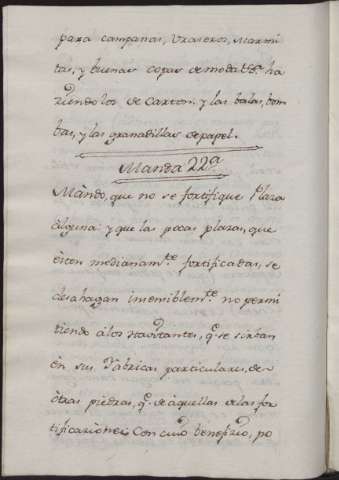 para campanas, Vraseros, Marmi
tas, y buenas copas de moda ttª. ha
ziendolos de Carton. y las balas, bom
bas, y las granadillas de papel.
Manda 22ª
Mando, que no se fortifique Plaza
alguna: y que las pocas plazas, que
dicen medianamte. fortificadas, se
desahagan
no permi
tiendo álos Havitantes, q. se sirban
èn sus Fabricas particulares, de
òtras piedras, q. de àquellas de las for
tificaciones: Con cuio beneficio, po